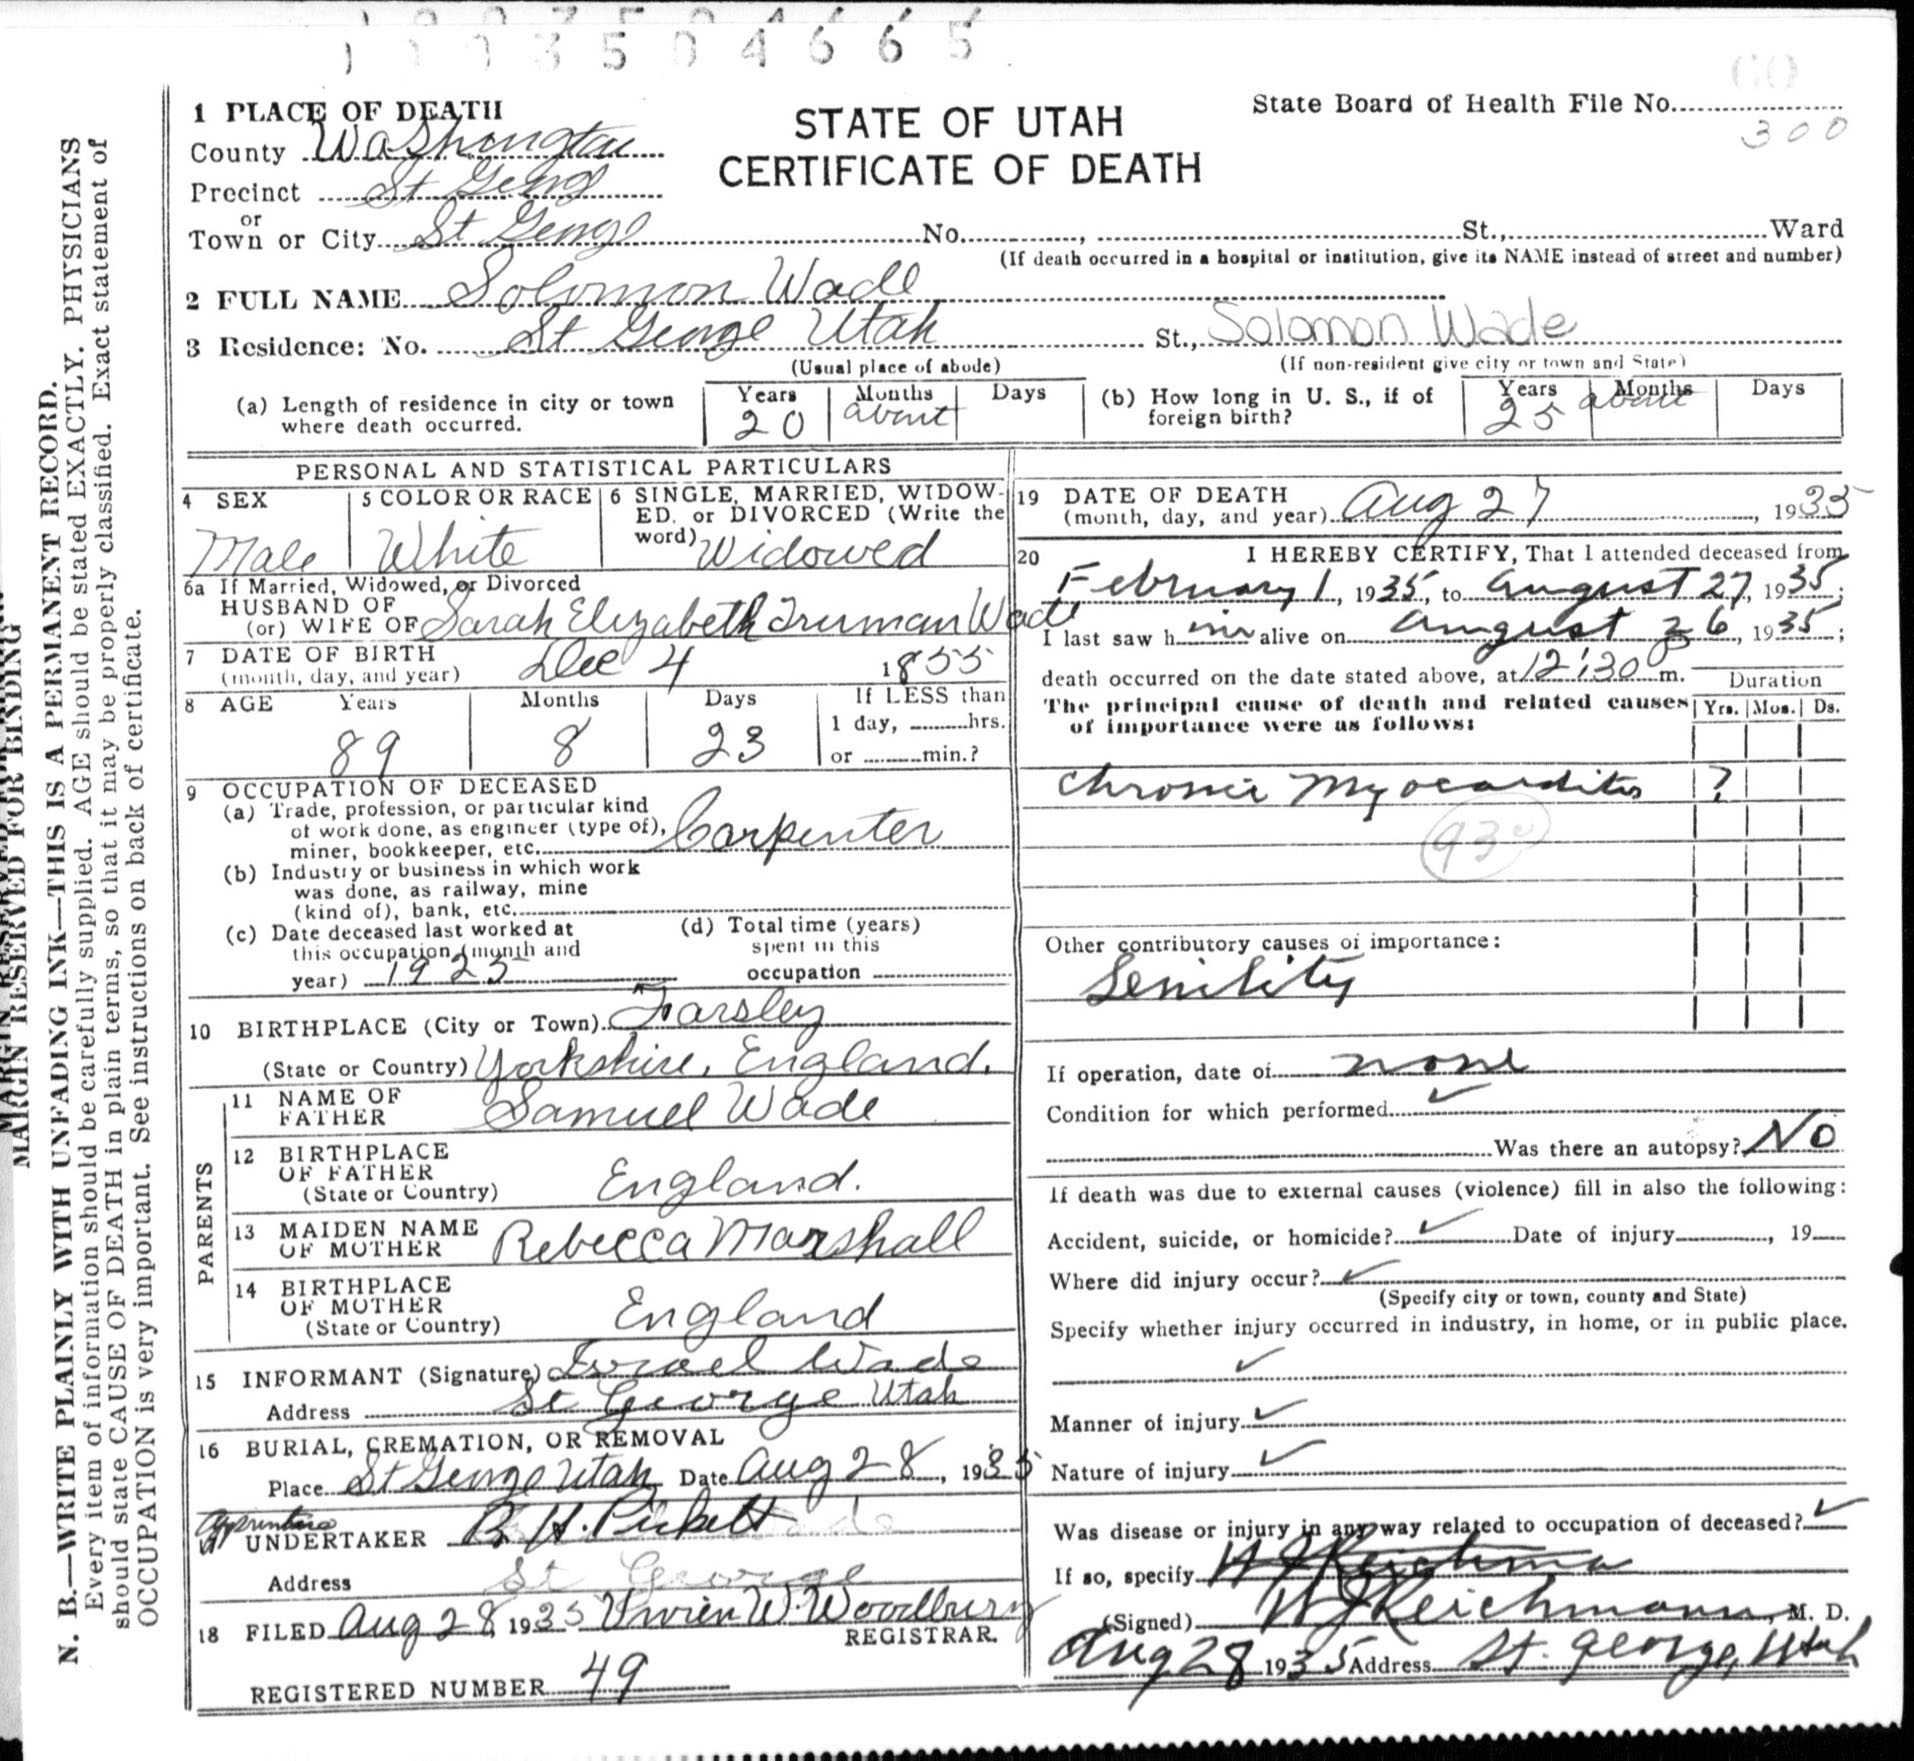 1003504665
60
1 PLACE OF DEATH
STATE OF UTAH
CERTIFICATE OF DEATH
State Board of Health File No.
300
County Washington
Precinct St George
or
Town or City St George No. , St., Ward
(If death occurred in a hospital or institution, give its NAME instead of street and number)
2 FULL NAME Solomon Wade
3 Residence: No. St George Utah St., Solomon Wade
(Usual place of abode) (If non-resident give city or town and State)
(a) Length of residence in city or town where death occurred. Years 20 Months about Days
(b) How long in U. S., if of foreign birth? Years 25 Months about Days
PERSONAL AND STATISTICAL PARTICULARS
4 SEX Male
5 COLOR OR RACE White
6 SINGLE, MARRIED, WIDOW-
ED, or DIVORCED (Write the
word) Widowed
6a If Married, Widowed, or Divorced
HUSBAND OF
(or) WIFE OF Sarah Elizabeth Truman Wade
7 DATE OF BIRTH
(month, day, and year) Dec 4 1855
8 AGE Years 89 Months 8 Days 23
If LESS than
1 day, hrs.
or min.?
9 OCCUPATION OF DECEASED
(a) Trade, profession, or particular kind
of work done, as engineer (type of),
miner, bookkeeper, etc. Carpenter
(b) Industry or business in which work
was done, as railway, mine
(kind of), bank, etc.
(c) Date deceased last worked at
this occupation (month and
year) 1925
(d) Total time (years)
spent in this
occupation
10 BIRTHPLACE (City or Town) Farsley
(State or Country) Yorkshire, England.
PARENTS
11 NAME OF
FATHER Samuel Wade
12 BIRTHPLACE
OF FATHER
(State or Country) England.
13 MAIDEN NAME
OF MOTHER Rebecca Marshall
14 BIRTHPLACE
OF MOTHER
(State or Country) England
15 INFORMANT (Signature) Israel Wade
Address St George Utah
16 BURIAL, CREMATION, OR REMOVAL
Place St George Utah Date Aug 28, 1935
UNDERTAKER B. H. Pickett
Address St George
18 FILED Aug 28, 1935 Vivien W. Woodbury
REGISTRAR.
REGISTERED NUMBER 49
19 DATE OF DEATH
(month, day, and year) Aug 27, 1935
20 I HEREBY CERTIFY, That I attended deceased from
February 1, 1935, to August 27, 1935;
I last saw him alive on August 26, 1935;
death occurred on the date stated above, at 12:30 m.
Duration
The principal cause of death and related causes
of importance were as follows:
Yrs. Mos. Ds.
Chronic Myocarditis ?
93
Other contributory causes of importance:
Senility
If operation, date of none
Condition for which performed
Was there an autopsy? No
If death was due to external causes (violence) fill in also the following:
Accident, suicide, or homicide? Date of injury , 19
Where did injury occur?
(Specify city or town, county and State)
Specify whether injury occurred in industry, in home, or in public place.
Manner of injury
Nature of injury
Was disease or injury in any way related to occupation of deceased?
If so, specify
(Signed) W J Reichmann, M. D.
Aug 28 1935 Address St. George, Utah
MARGIN RESERVED FOR BINDING
N. B.—WRITE PLAINLY WITH UNFADING INK—THIS IS A PERMANENT RECORD.
Every item of information should be carefully supplied. AGE should be stated EXACTLY. PHYSICIANS
should state CAUSE OF DEATH in plain terms, so that it may be properly classified. Exact statement of
OCCUPATION is very important. See instructions on back of certificate.